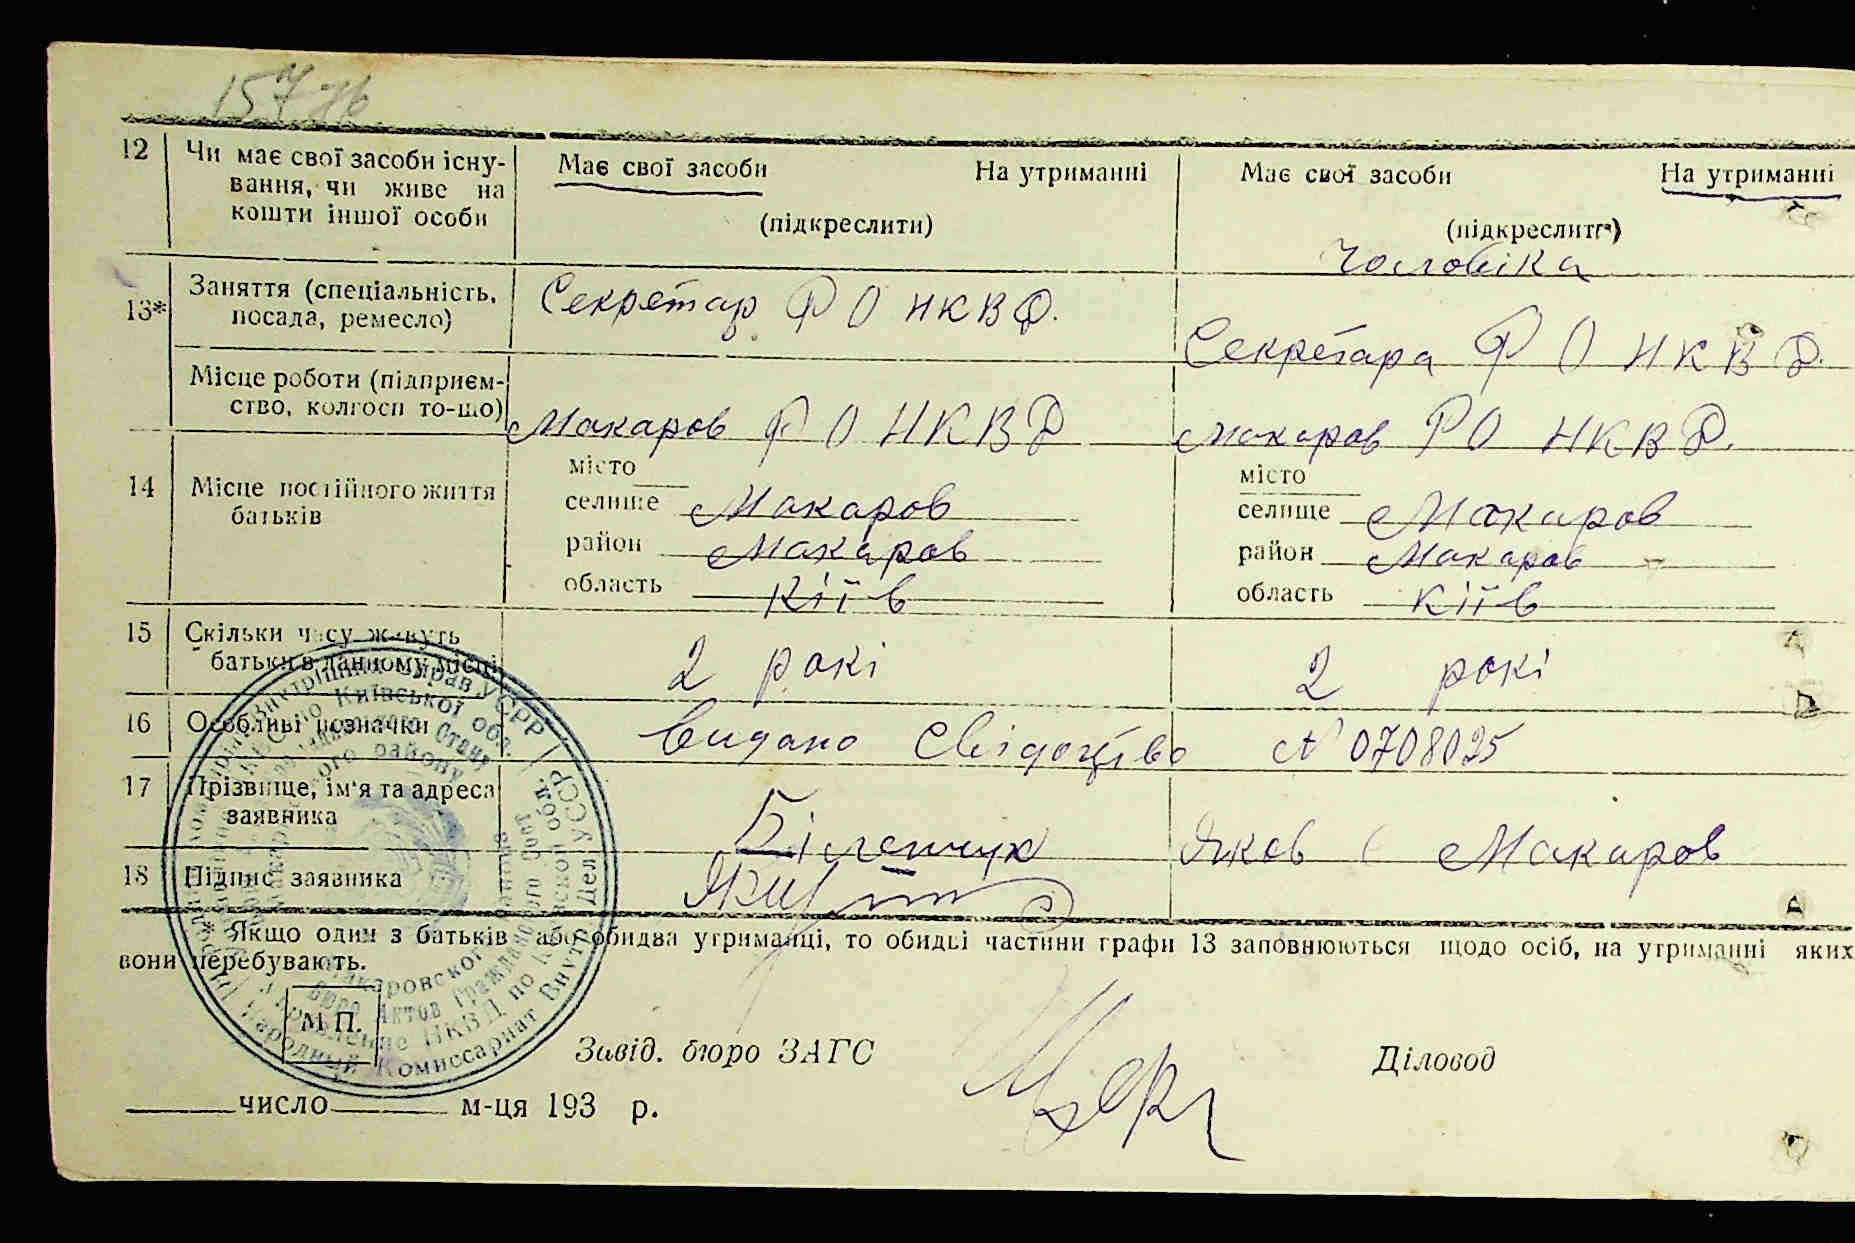 157 зв
12 Чи має свої засоби існу- Має свої засоби На утриманні Має свої засоби На утриманні
вання, чи живе на
кошти іншої особи (підкреслити) (підкреслити)
Чоловіка
13* Заняття (спеціальність, Секретар РО НКВД.
посада, ремесло) Секретара РО НКВД.
Місце роботи (підприєм-
ство, колгосп то-що) Макаров РО НКВД Макаров РО НКВД.
місто місто
14 Місце постійного життя селище Макаров селище Макаров
батьків район Макаров район Макаров
область Київ область Київ
15 Скільки часу живуть
батьки в данному місці 2 рокі 2 рокі
16 Особливі позначки Видано Свідоцтво N 0708025
17 Прізвище, ім'я та адреса
заявника Біленчук Яков Макаров
18 Підпис заявника
* Якщо один з батьків або обидва утриманці, то обидві частини графи 13 заповнюються щодо осіб, на утриманні яких
вони перебувають.
М.П.
Завід. бюро ЗАГС Діловод
число м-ця 193 р.
Справ УСРР
Київської обл.
Стану
ого району
Макаровского
Бюро Актов Гражданского Сост
Управление НКВД по К
Народный Комиссариат Внутр. Дел УССР